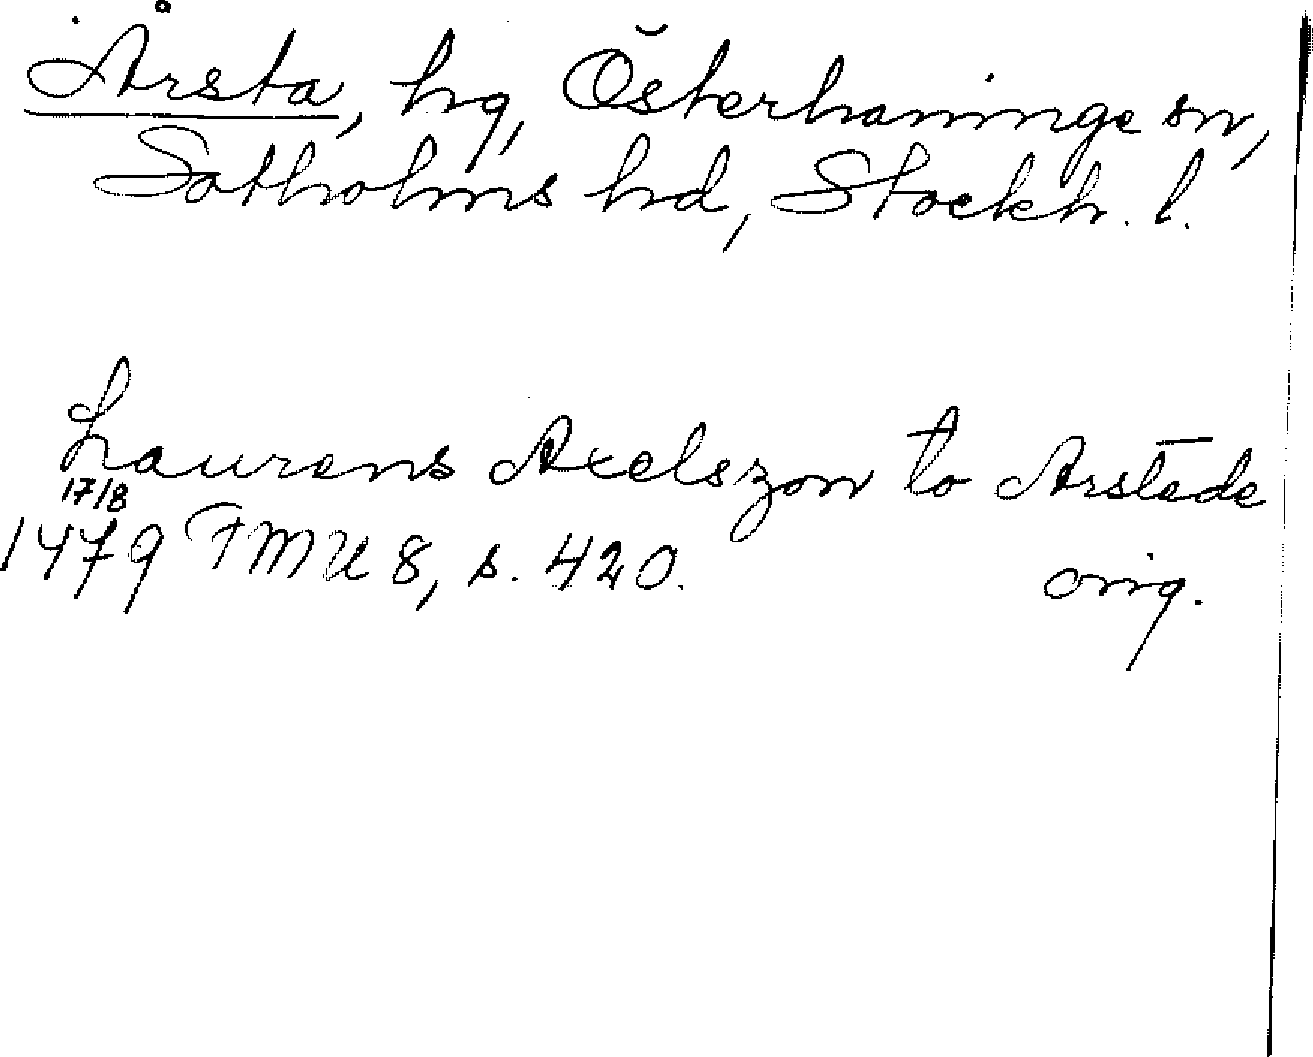 Årsta, hg, Österhaninge sn,
Sotholms hd, Stockh. l.
Laurens Axelszon to Arstede
17/8
1479 FMU 8, s. 420. orig.